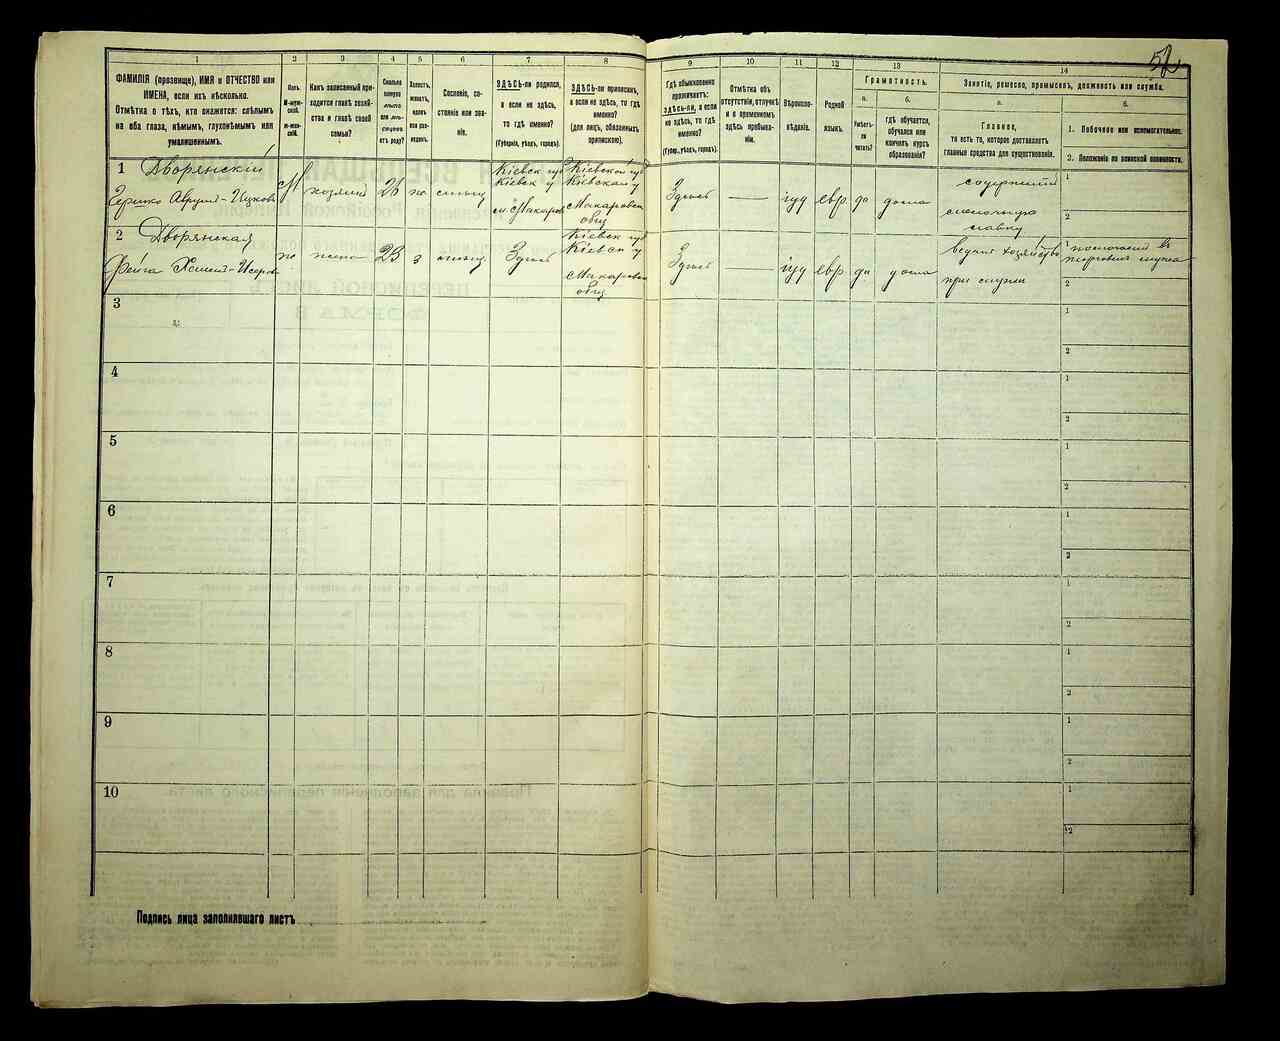 52
1 2 3 4 5 6 7 8 9 10 11 12 13 14
ФАМИЛІЯ (прозвище), ИМЯ и ОТЧЕСТВО или
ИМЕНА, если ихъ нѣсколько.
Отмѣтка о тѣхъ, кто окажется: слѣпымъ
на оба глаза, нѣмымъ, глухонѣмымъ или
умалишеннымъ.
Полъ
М-муж-
ской.
Ж-жен-
скій.
Какъ записанный при-
ходится главѣ хозяй-
ства и главѣ своей
семьи?
Сколько
минуло
лѣтъ
или мѣ-
сяцевъ
отъ роду?
Холостъ,
женатъ,
вдовъ
или раз-
веденъ.
Сословіе, со-
стояніе или зва-
ніе.
ЗДѢСЬ-ли родился,
а если не здѣсь,
то гдѣ именно?
(Губернія, уѣздъ, городъ).
ЗДѢСЬ-ли приписанъ,
а если не здѣсь, то гдѣ
именно?
(для лицъ, обязанныхъ
припискою).
Гдѣ обыкновенно
проживаетъ:
здѣсь-ли, а если
не здѣсь, то гдѣ
именно?
(Губерн., уѣздъ, городъ).
Отмѣтка объ
отсутствіи, отлучкѣ
и о временномъ
здѣсь пребыва-
ніи.
Вѣроиспо-
вѣданіе.
Родной
языкъ.
Грамотность.
а.
Умѣетъ-
ли
читать?
б.
гдѣ обучается,
обучался или
кончилъ курсъ
образованія?
Занятіе, ремесло, промыселъ, должность или служба.
а.
Главное,
то есть то, которое доставляетъ
главныя средства для существованія.
б.
1. Побочное или вспомогательное.
2. Положеніе по воинской повинности.
1 Дворянскій
Гершко Аврумъ-Ицков
М
хозяинъ
26
ж
Кіевск губ
Кіевск у
м. Макаров
Кіевской губ
Кіевскаго у
Макаровск
общ
Здѣсь
—
іуд
евр.
да
дома
содержитъ
лавку
1
2
2 Дворянская
Фейга
ж
жена
23
з
Здѣсь
Кіевск губ
Кіевск у
Макаровск
общ
Здѣсь
—
іуд
евр
да
дома
ведетъ хозяйство
при мужѣ
1
помогаетъ въ
торговлѣ мужа
2
3
1
2
4
1
2
5
1
2
6
1
2
7
1
2
8
1
2
9
1
2
10
1
2
Подпись лица заполнявшаго листъ